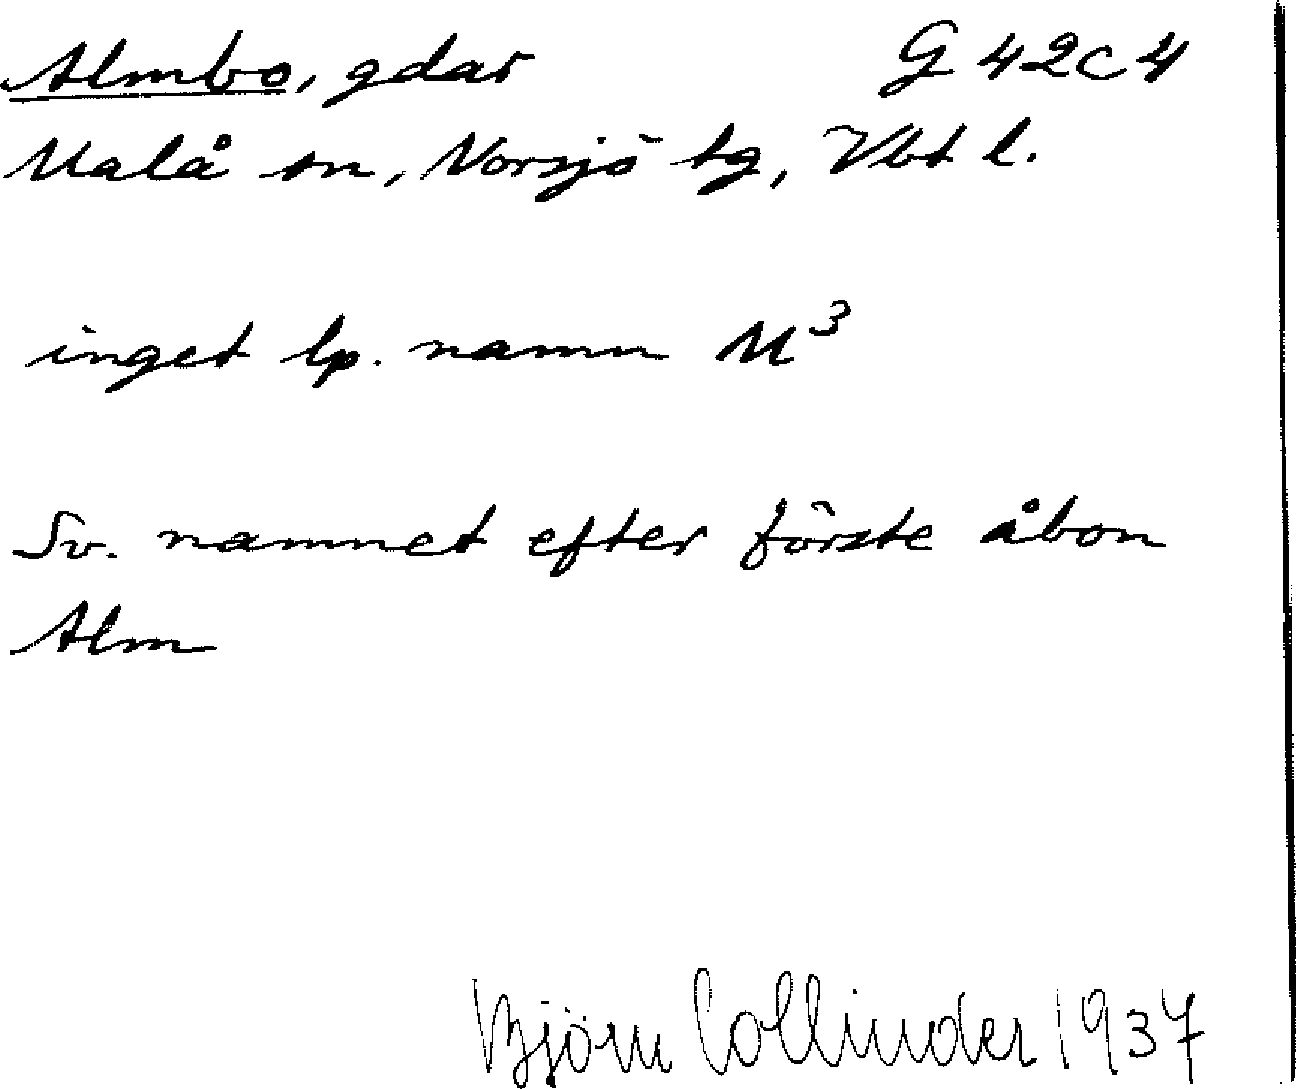 Almbo, gdar G 42c4
Malå sn, Norsjö tg, Vbt l.
inget lp. namn M³
Sv. namnet efter förste åbon
Alm
Björn Collinder 1937